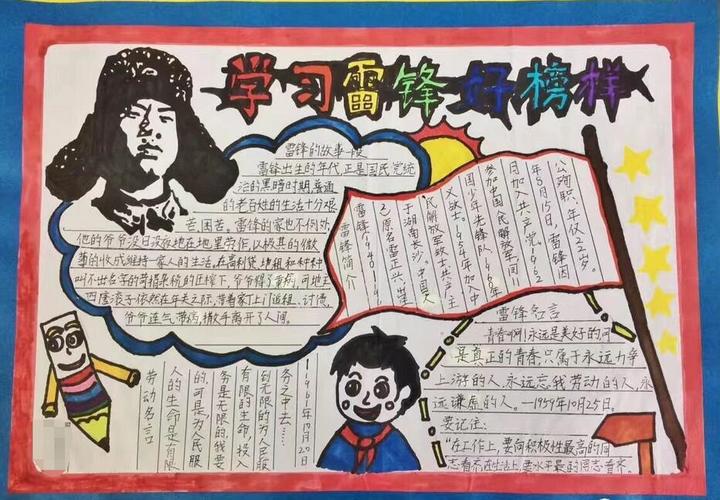 学习雷锋好榜样
雷锋的故事一段
雷锋出生的年代正是国民党统
治的黑暗时期,普通
的老百姓的生活十分艰
苦,困苦。雷锋的家也不例外
他的爷爷没日没夜地在地里劳作,以极的微
薄的收成维持一家人的生活。在高利贷、地租和种种
叫不出名字的苛捐杂税的压榨下,爷爷得了重病,可地主
滚子依然在年关之际,带着家丁上门逼租、讨债
爷爷连气带病,撒手离开了人间。
雷锋简介
雷锋(1940.11.9
2)原名雷正兴,出生
于湖南长沙。中国人
民解放军战士,共产主
义战士。1954年加入中
国少年先锋队,1960年
参加中国人民解放军,同11
月加入共产党。1962
年8月15日,雷锋因
公殉职,年仅22岁。
雷锋名言
青春啊!永远是美好的,可
是真正的青春,只属于永远力争
上游的人,永远忘我劳动的人,永
远谦虚的人。—1959年10月25日。
要记住:
"在工作上,要向积极性最高的同
志看齐,在生活上,要水平最的同志看齐。
劳动名言
人的生命是有限
的,可是,为人民服
务是无限的,我要
有限的生命,投入
到无限的为人民服
务之中去……
1961年10月20日